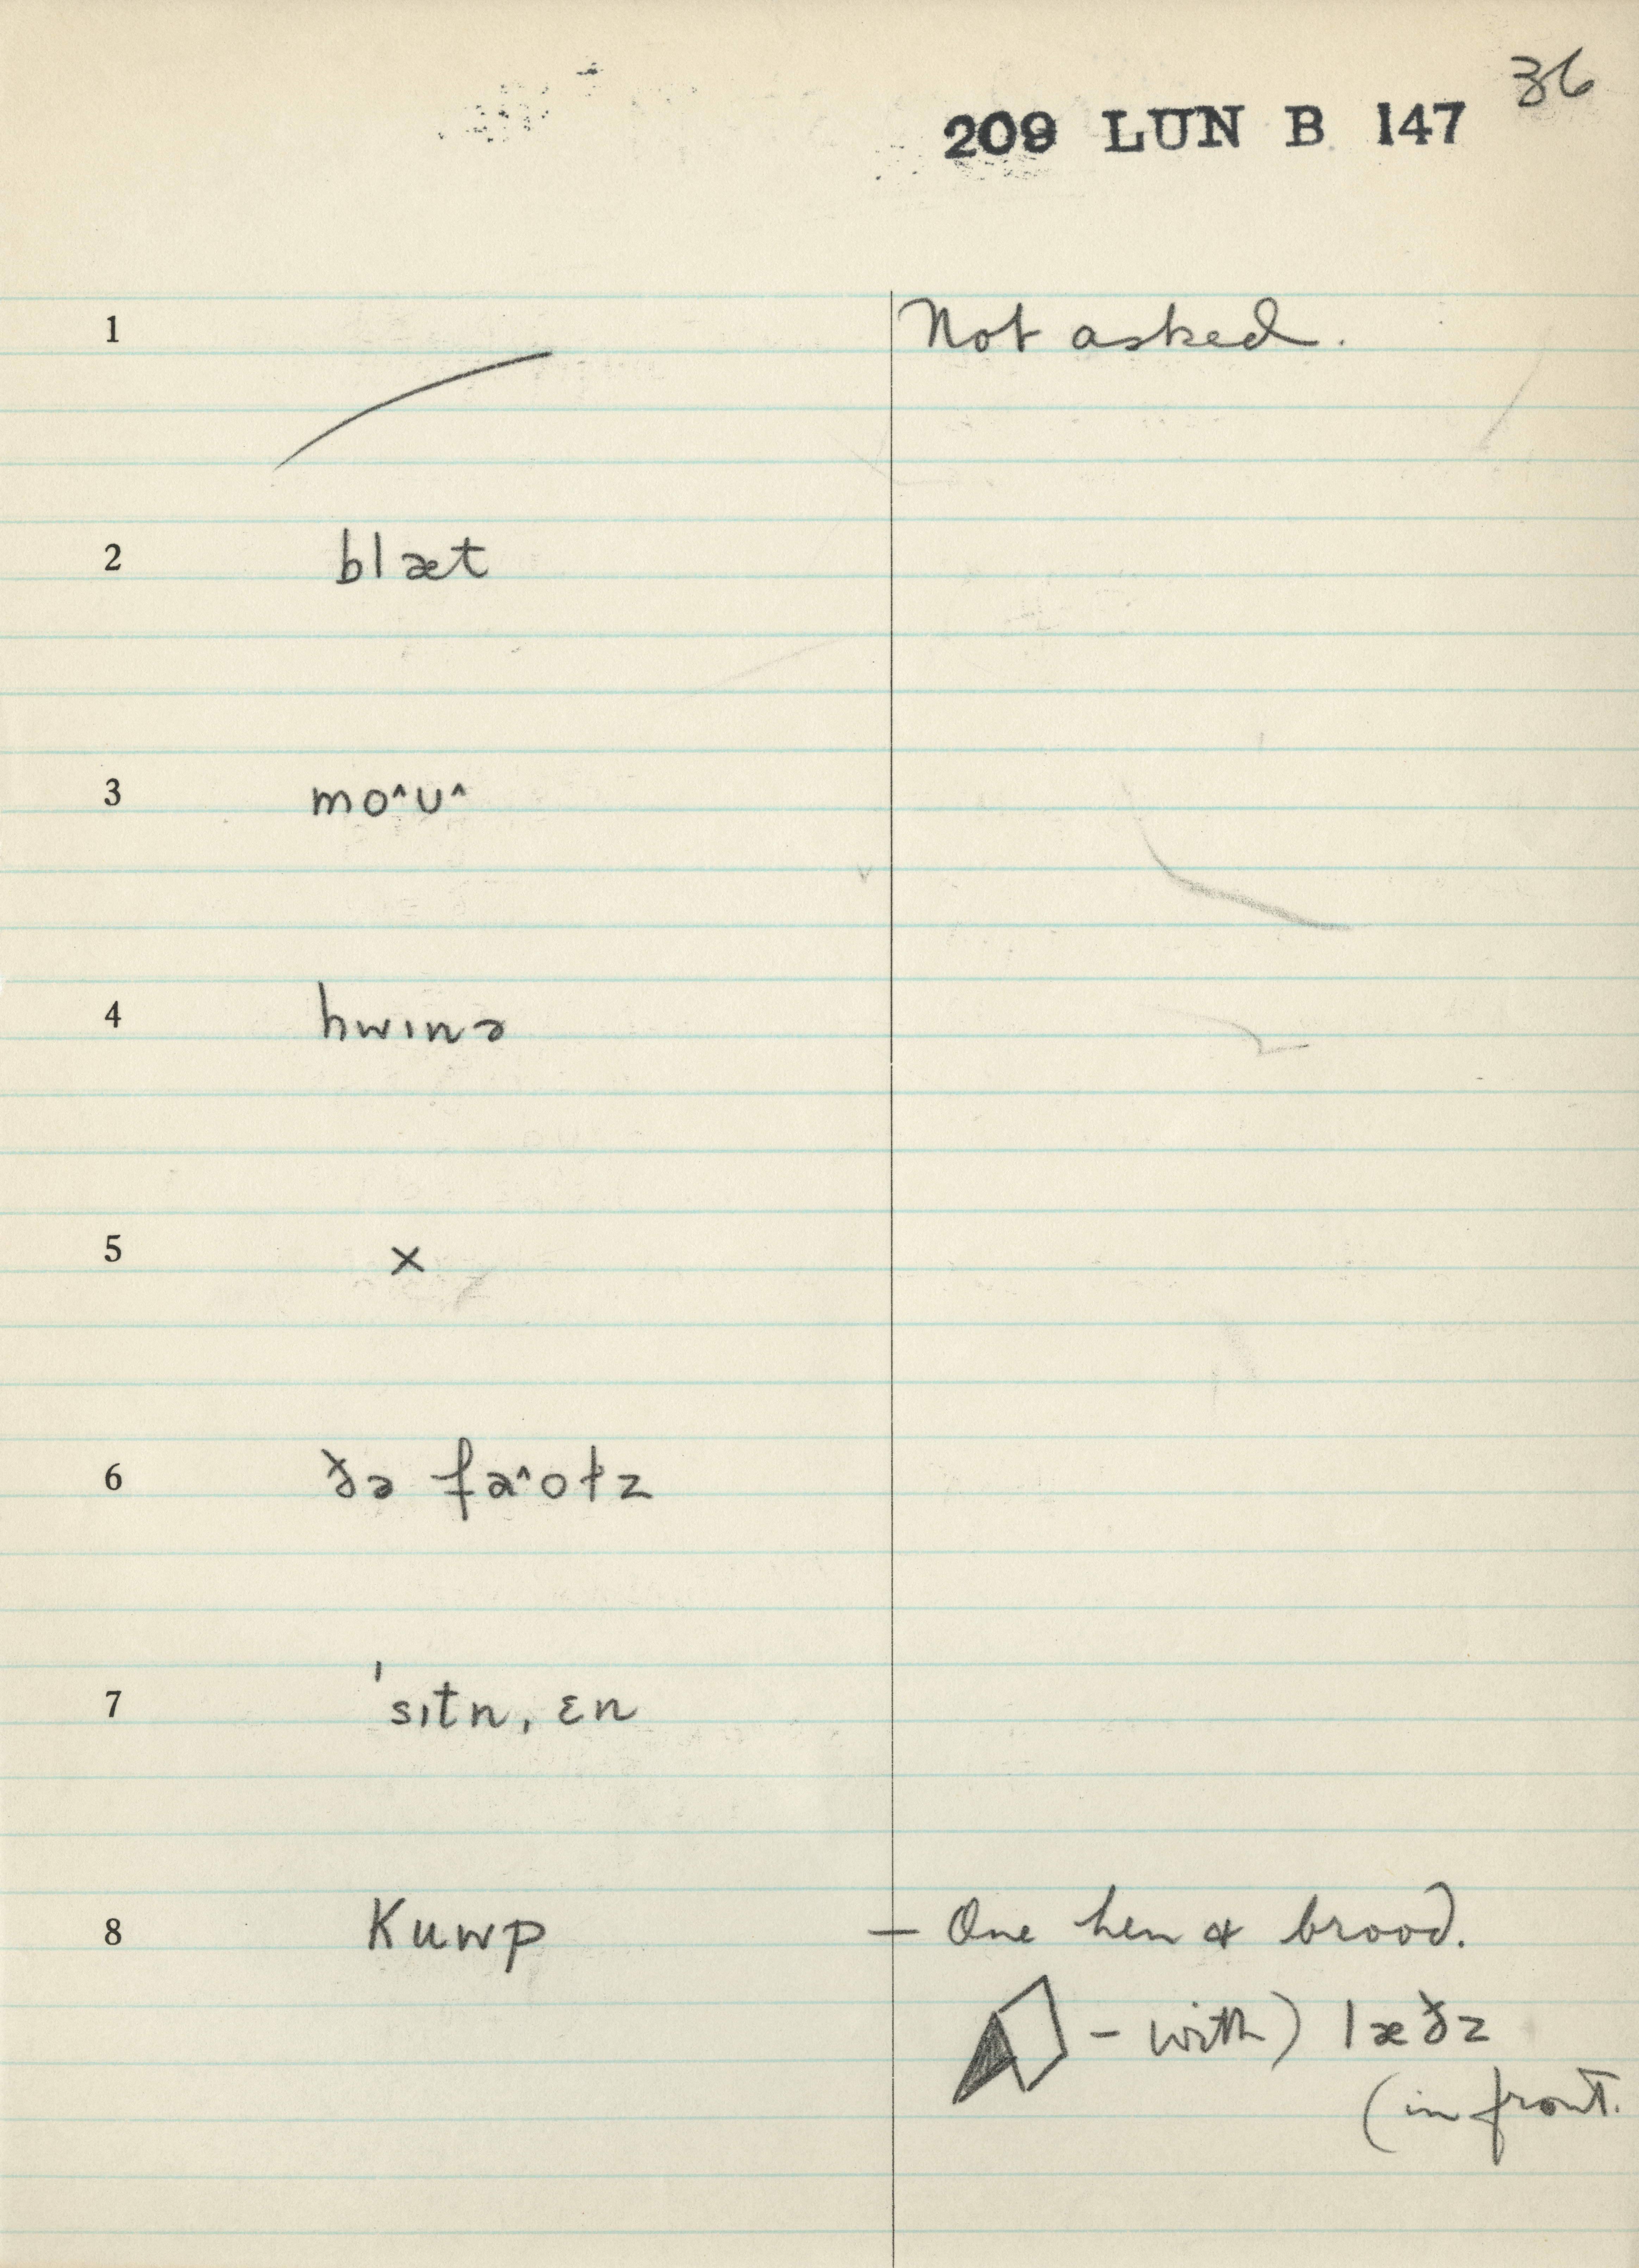 36
209 LUN B 147
1 Not asked.
2 blæt
3 mo^ʊ^
4 hwɪnə
5 ×
6 ðə fə^oɫz
7 ˈsɪtn, ɛn
8 Kuwp — One hen & brood.
– with) læðz
(in front.